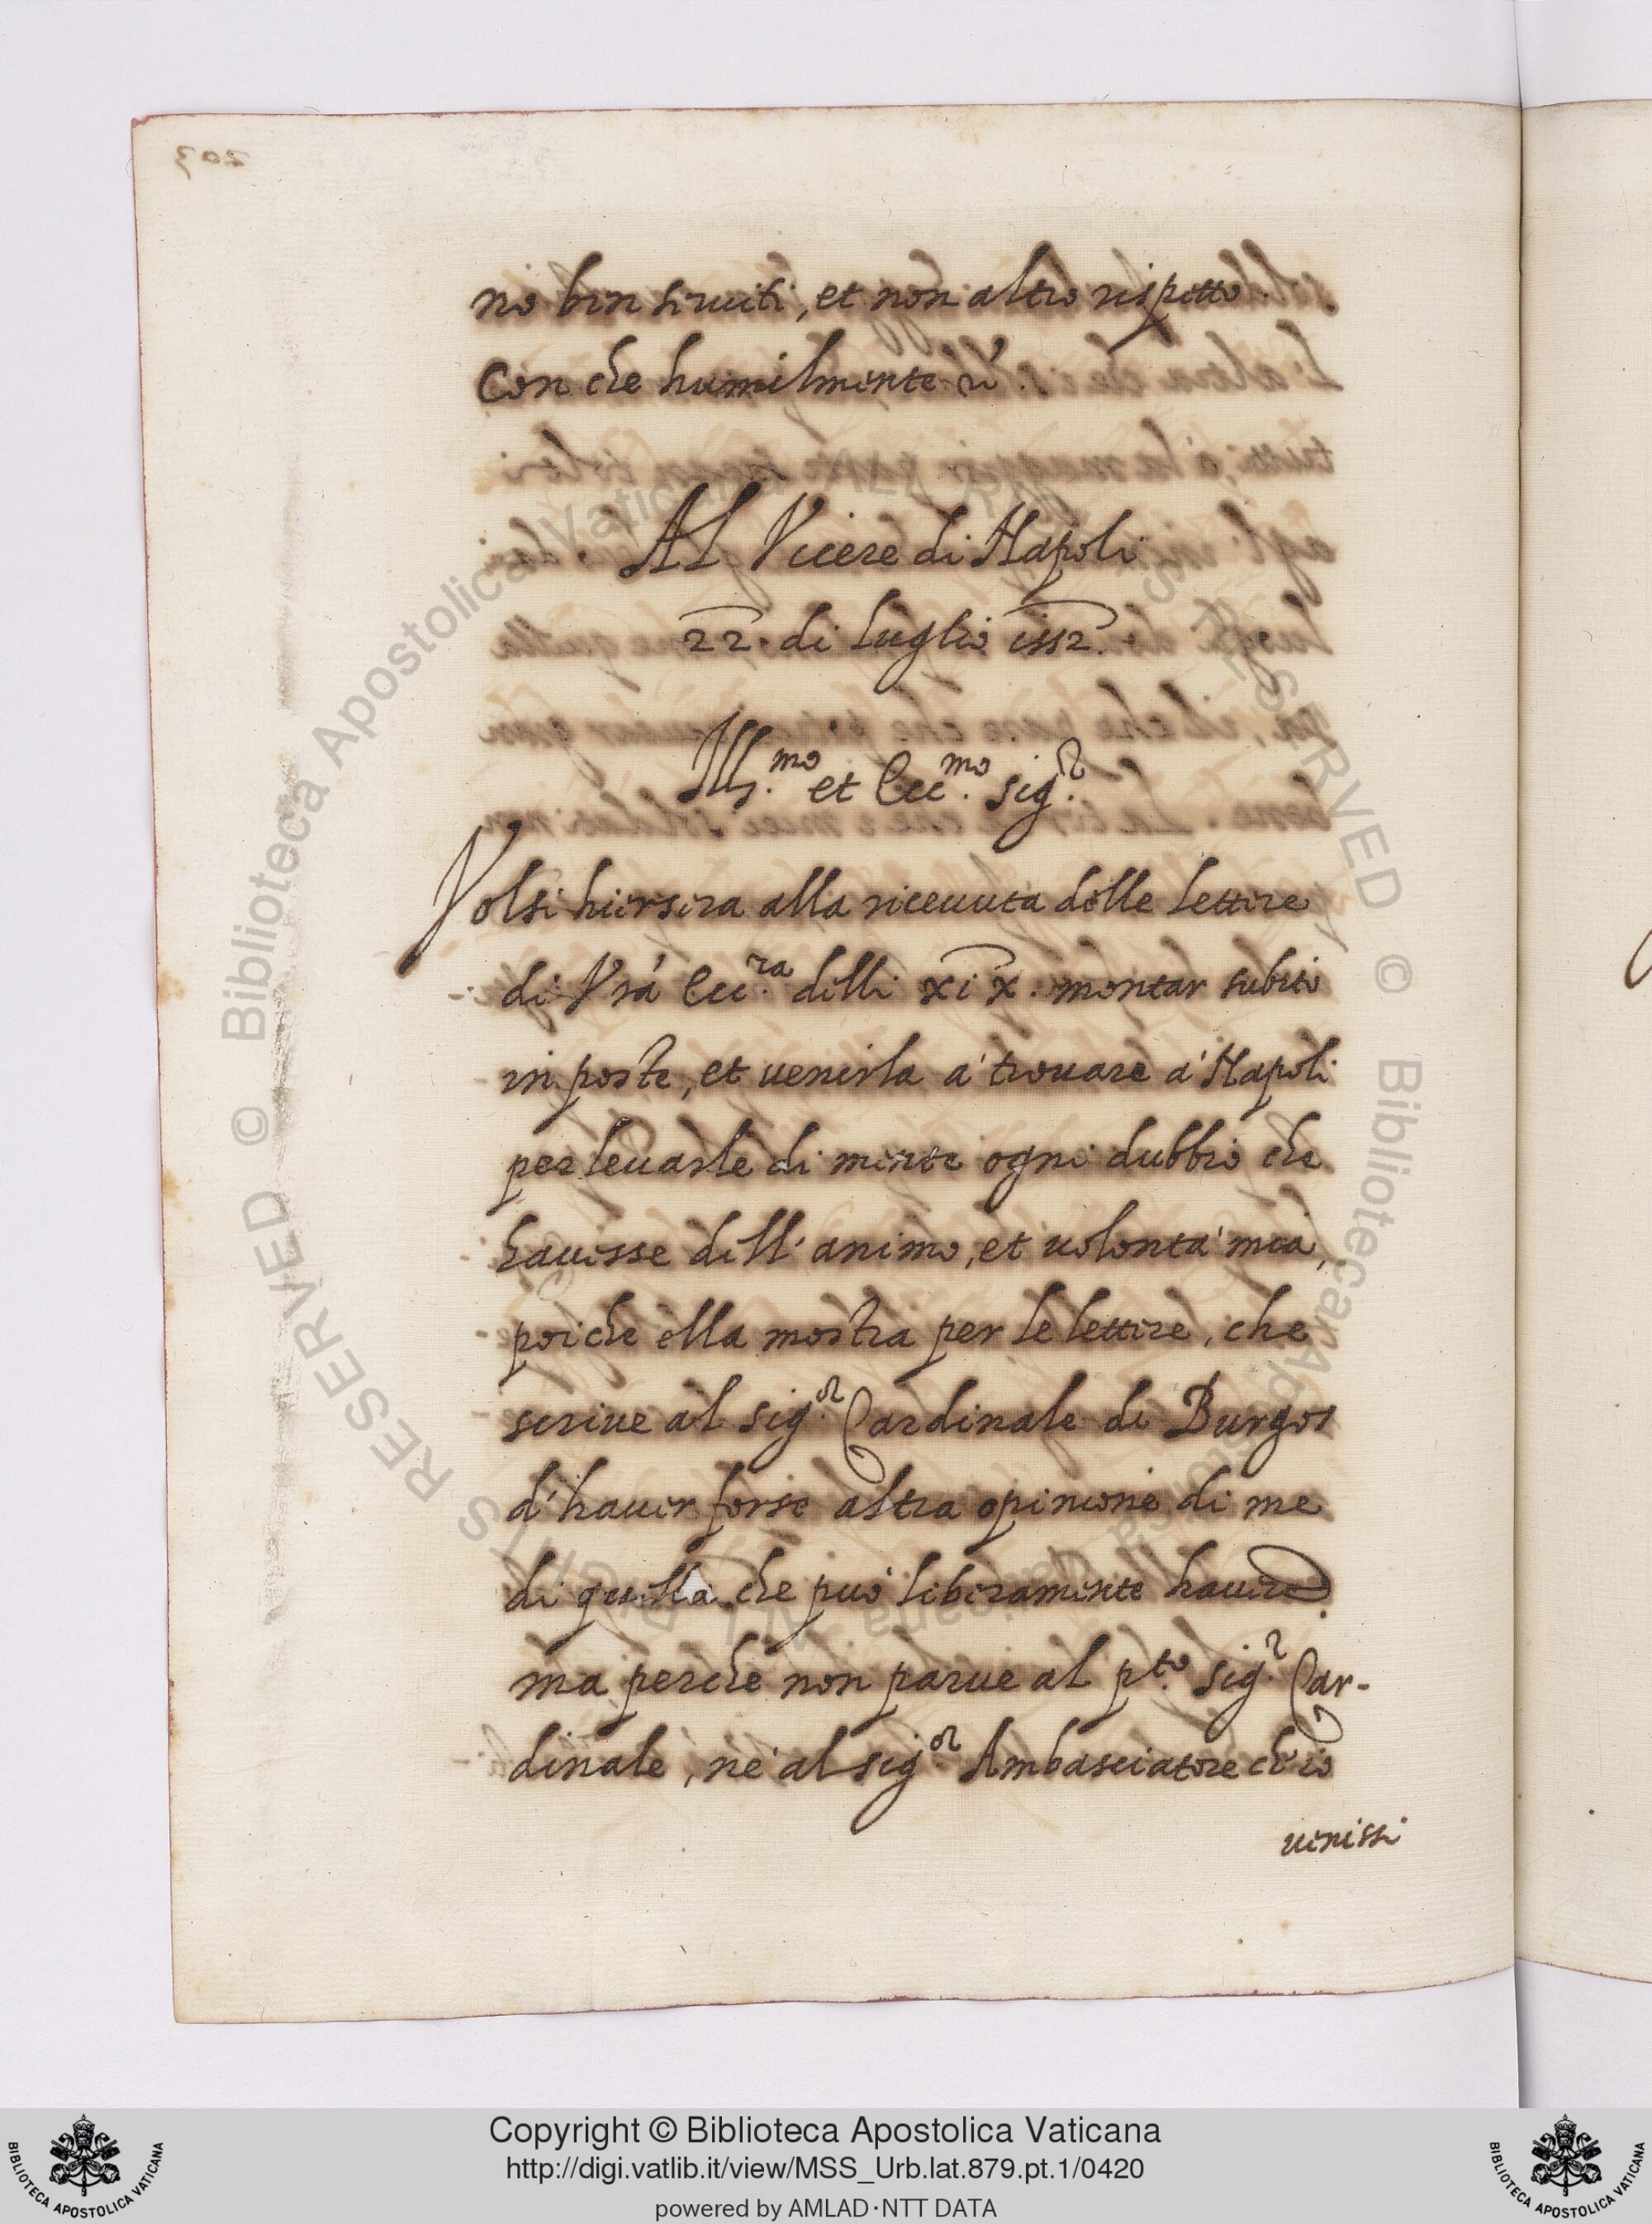 no ben seruiti, et non altro rispetto.
Con che humilmente &.
Al Vicere di Napoli
22. di Luglio 1552.
Ill.mo et Ecc.mo sig.r
Volsi hiersera alla riceuuta delle lettere
di Vra Ecc.ra delli xix. montar subito
in poste, et venirla à trouare à Napoli
per leuarle di mente ogni dubbio che
hauesse dell'animo, et uolontà mia,
poi che ella mostra per le lettere, che
scriue al sig.r Cardinale di Burgos
d'hauer forse altra opinione di me
di quella che può liberamente hauere.
ma perche non parue al p.to sig.r Car-
dinale, ne al sig.or Ambasciatore ch'io
uenissi
Copyright © Biblioteca Apostolica Vaticana
http://digi.vatlib.it/view/MSS_Urb.lat.879.pt.1/0420
powered by AMLAD·NTT DATA
BIBLIOTECA APOSTOLICA VATICANA
BIBLIOTECA APOSTOLICA VATICANA